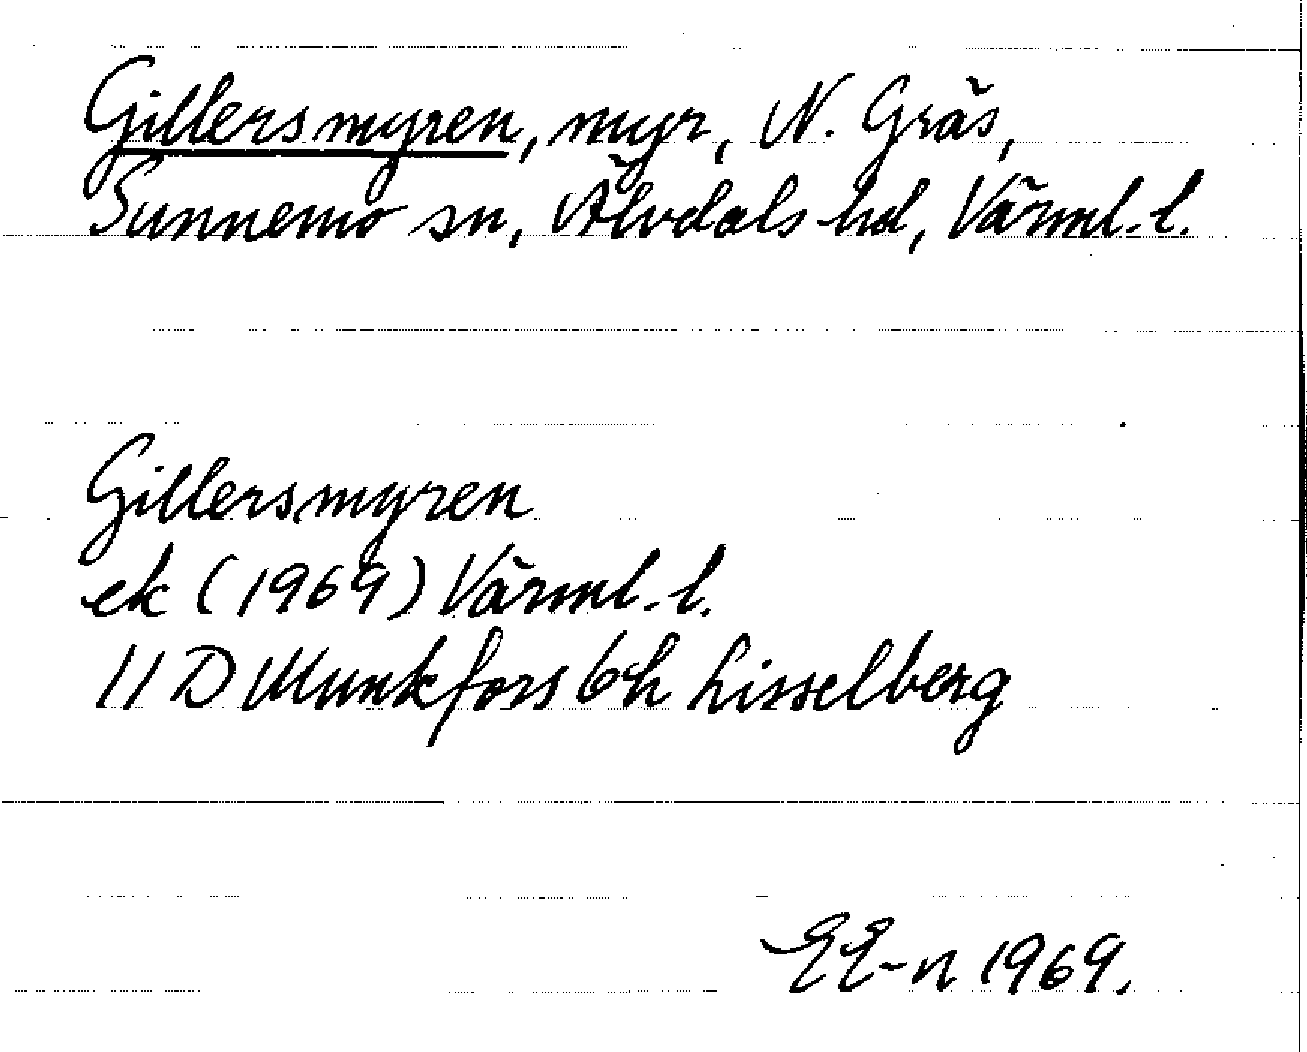 Gillersmyren, myr, N. Gräs,
Sunnemo sn, Älvdals hd, Värml. l.
Gillersmyren
ek (1969) Värml. l.
11 D Munkfors 6h Lisselberg
EE-n 1969.